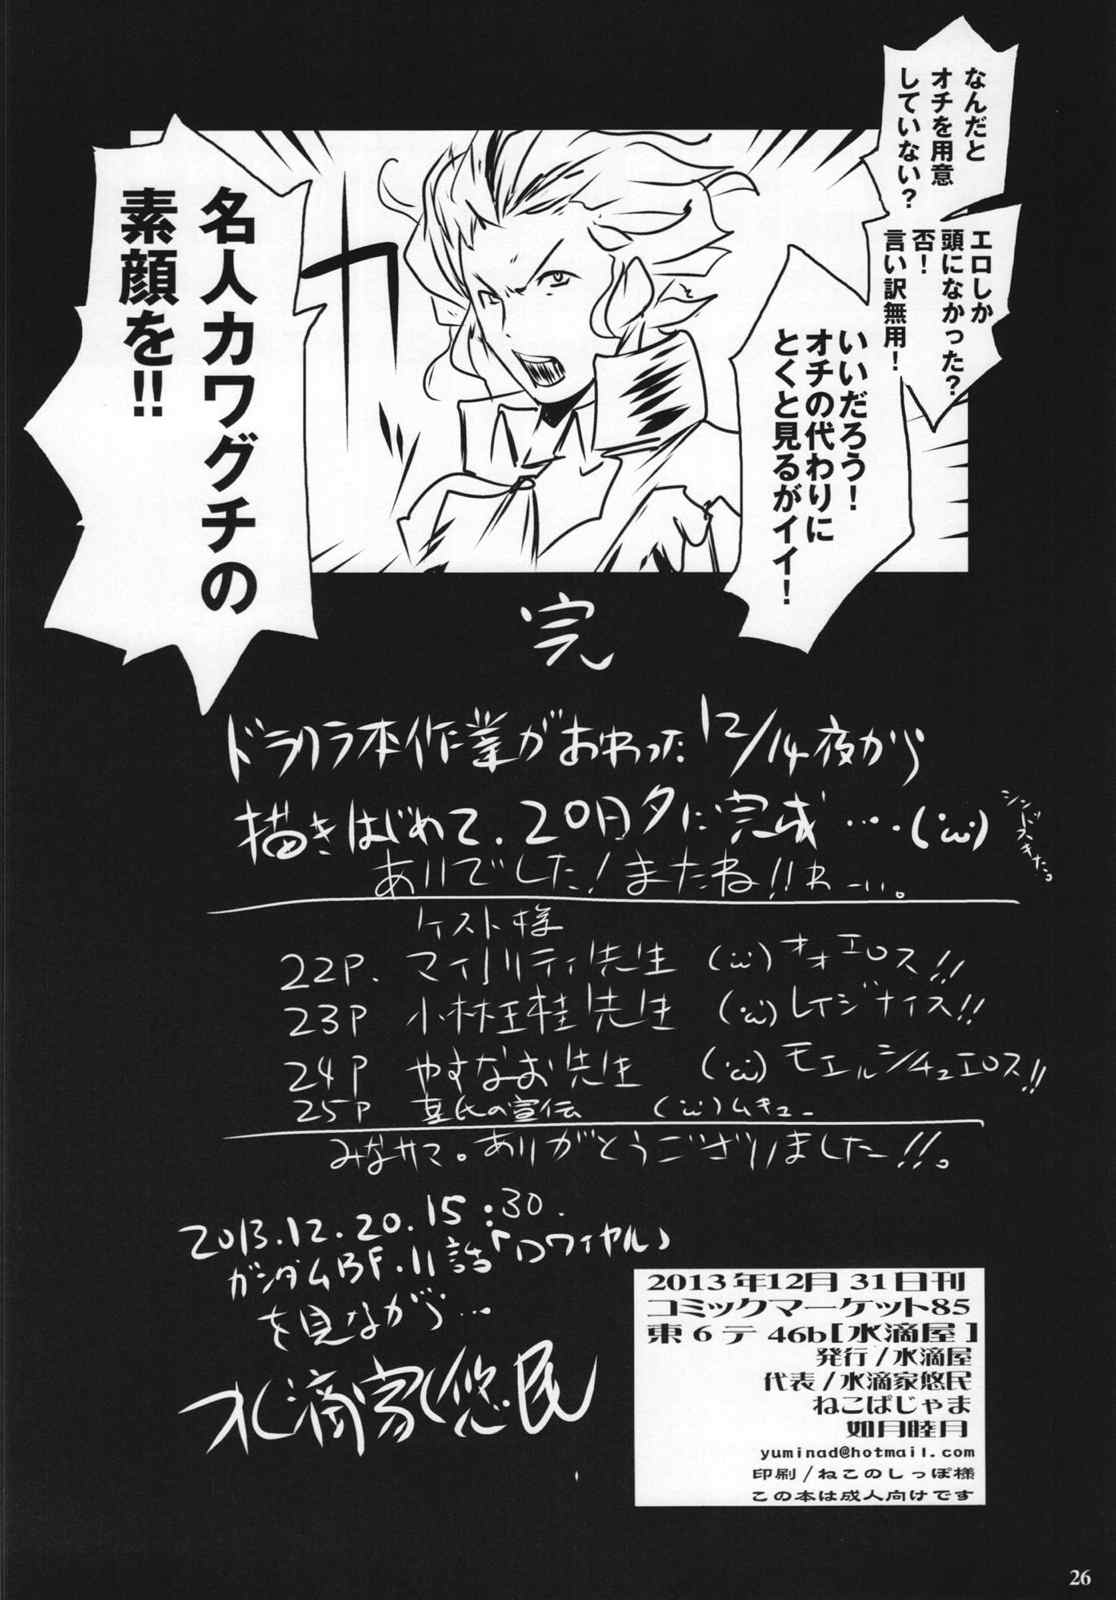 なんだと
オチを用意
していない？
エロしか
頭になかった？
否！
言い訳無用！
いいだろう！
オチの代わりに
とくと見るがイイ！
名人カワグチの
素顔を！！
カッ
完
ドラクラ本作業がおわった12/14夜から
描きはじめて、20日夕に完成・・・・(´ω`)
シンドスぎた。
ありでした！またね!!
ゲスト様
22P. マイノリティ先生 (´ω`)オオエロス!!
23P 小林王桂先生 (´ω`)レイジナイス!!
24P やすなお先生 (´ω`)モエルシチュエロス!!
25P 某氏の宣伝 (´ω`)ムキュー
みなサマ。ありがとうございました!!。
2013.12.20.15:30.
ガンダムBF.11話「ロワイヤル」
を見ながら…
水滴家悠民
2013年12月31日刊
コミックマーケット85
東6テ46b[水滴屋]
発行/水滴屋
代表/水滴家悠民
ねこぱじゃま
如月睦月
yuminad@hotmail.com
印刷/ねこのしっぽ様
この本は成人向けです
26